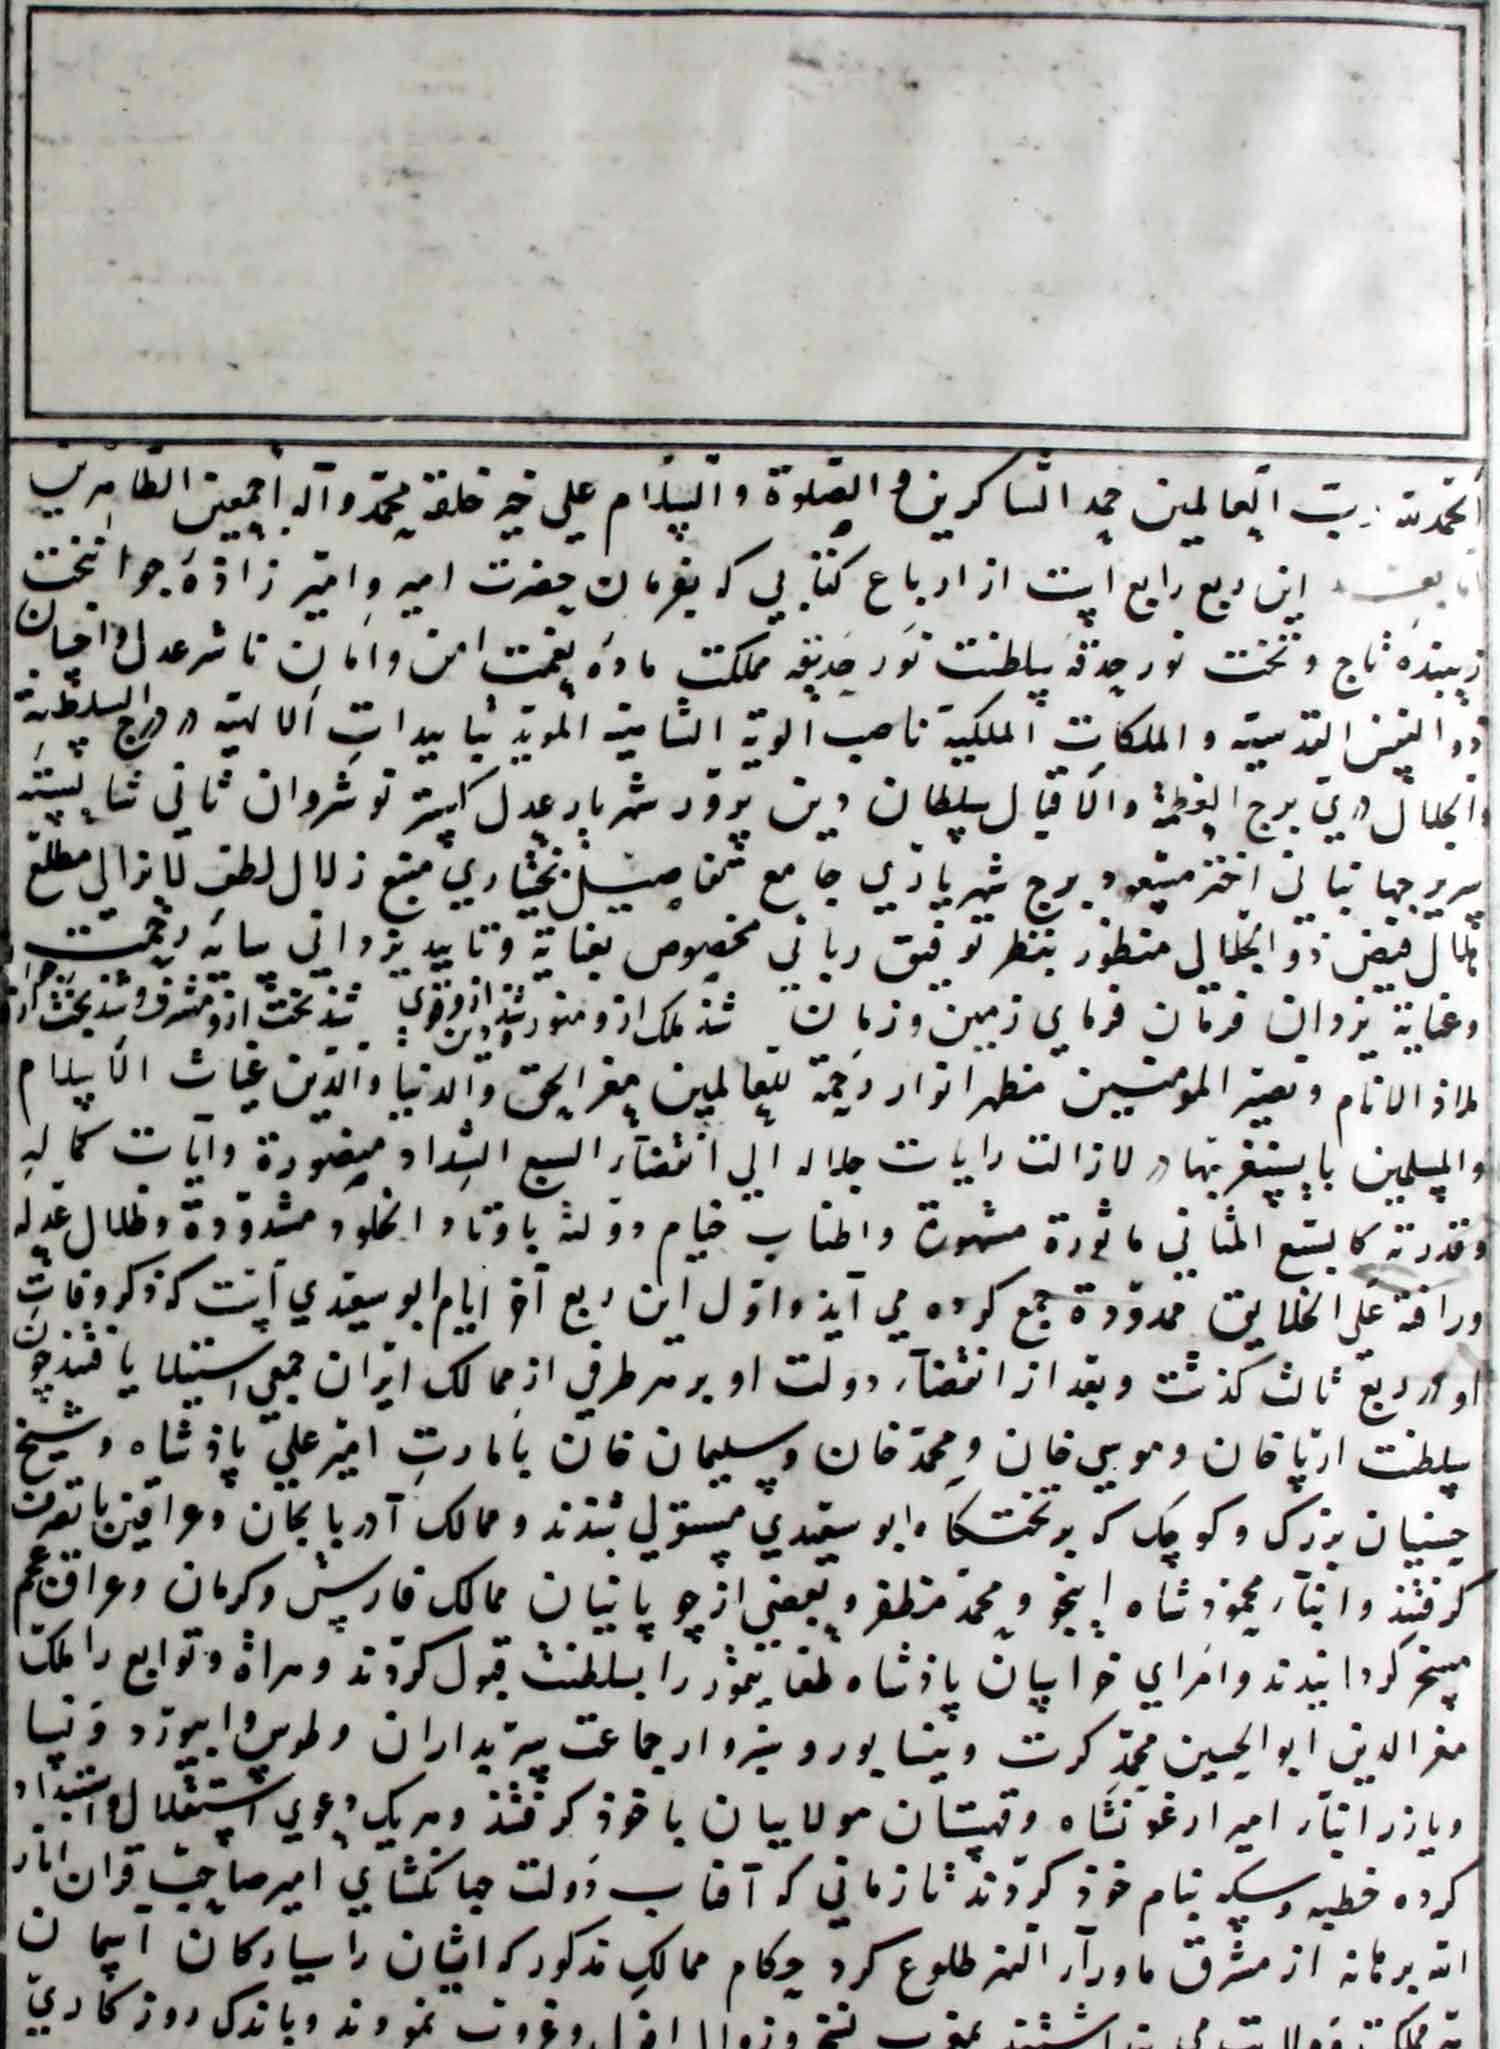 الحمد لله رب العالمین حمد الشاکرین و الصلوة والسلام علی خیر خلقه محمد وآله اجمعین الطاهرین
اما بعد این ربع رابع است از ارباع کتابی که بفرمان حضرت امیر و امیر زاذۀ جوانبخت
زیبندۀ تاج و تخت نور حدقۀ سلطنت نور حدیقۀ مملکت مادۀ نعمت امن و امان ناشر عدل و احسان
ذو النفس القدسیة و الملکات الملکیة ناصب الویة الشامیة الموید بتاییدات الالهیة در درج السلطنة
والجلال دری برج العظمة والاقبال سلطان دین پرور شهریار عدل کستر نوشروان ثانی شایستۀ
سریر جهانبانی اختر مسعود برج شهریاری جامع بختیاری منبع زلال لطف لایزالی مطلع
هلال فیض ذو الجلال منظور بنظر توفیق ربانی مخصوص بعنایة وتایید یزدانی سایۀ رحمت
وعنایة یزدان فرمان فرمای زمین و زمان شذ ملک ازو منور و دین شذ ازو قوی شذ تخت ازو مشرف و شذ بخت ازو
ملاذ الانام و نصیر المومنین مظهر انوار رحمة للعالمین معز الحق والدنیا والدین غیاث الاسلام
والمسلمین بایسنغر بهادر لازالت رایات جلاله الی انقضآء السبع الشداد منصورة وآیات کماله
وقدرته کالسبع المثانی ماثورة مشهورة واطناب خیام دولته باوتاد الخلود مشدودة وظلال عدله
ورافته علی الخلایق ممدودة جمع کرده می آیذ واول این ربع آخر ایام ابو سعیدی آنست که ذکر وفات
او در ربع ثالث کذشت وبعد از انقضآء دولت او بر هر طرفی از ممالک ایران جمعی استیلا یافتند چون
سلطنت ارپاخان وموسی خان ومحمد خان وسلیمان خان بامارت امیر علی پاذشاه وشیخ
حسنیان بزرک وکوچک که بر تختکاه ابو سعیدی مستولی شذند وممالک آذربایجان وعراقین باتصرف
کرفتند وابنآء محمود شاه اینجو ومحمد مظفر وبعضی از چوپانیان ممالک فارس وکرمان وعراق عجم
مسخر کردانیدند وامرای خراسان پاذشاه طغایتمور را بسلطنت قبول کردند وهراة وتوابع را ملک
معز الدین ابو الحسین محمد کرت ونیسابور وسبزوار جماعت سربداران وطوس وابیورد ونسا
ویازر ابنآء امیر ارغونشاه وقهستان مولاییان با خوذ کرفتند وهریک دعوی استقلال واستبداد
کرده خطبه وسکه بنام خوذ کردند تا زمانی که آفتاب دولت جهانکشای امیر صاحب قران انار
الله برهانه از مشرق ماورآء النهر طلوع کرد حکام ممالک مذکور که ایشان را سیارکان آسمان
وغروب نمودند وباندک روزکاری